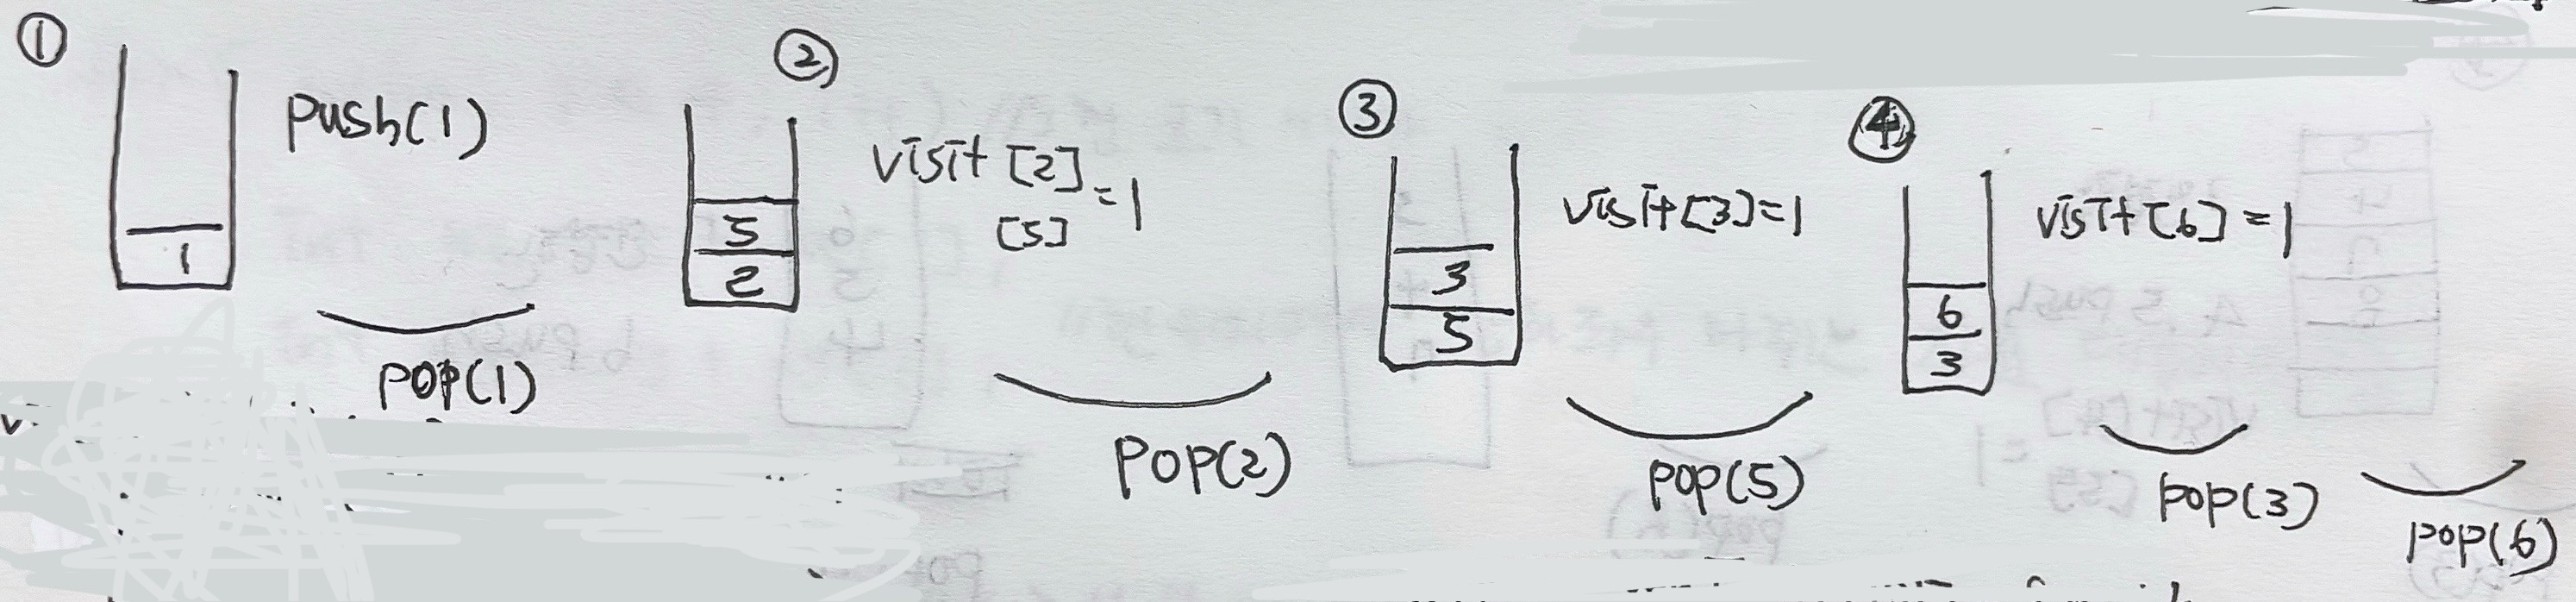 ①
push(1)
1
pop(1)
②
visit [2]
[5] =1
5
2
pop(2)
③
visit[3]=1
3
5
pop(5)
④
visit[6]=1
6
3
pop(3)
pop(6)